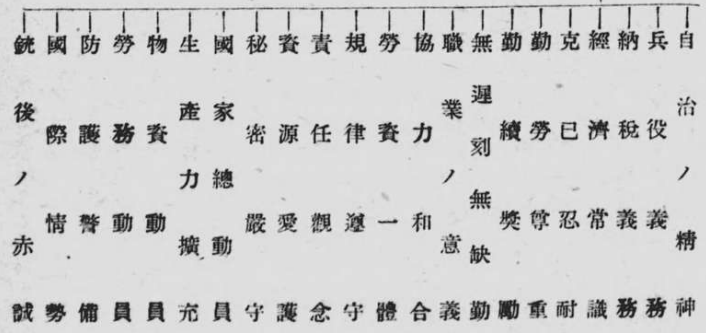 自治ノ精神
兵役義務
納税義務
經濟常識
克已忍耐
勤勞尊重
勤續奬勵
無遲刻無缺勤
職業ノ意義
協力和合
勞資一體
規律遵守
責任觀念
資源愛護
秘密嚴守
國家總動員
生產力擴充
物資動員
勞務動員
防護警備
國際情勢
銃後ノ赤誠